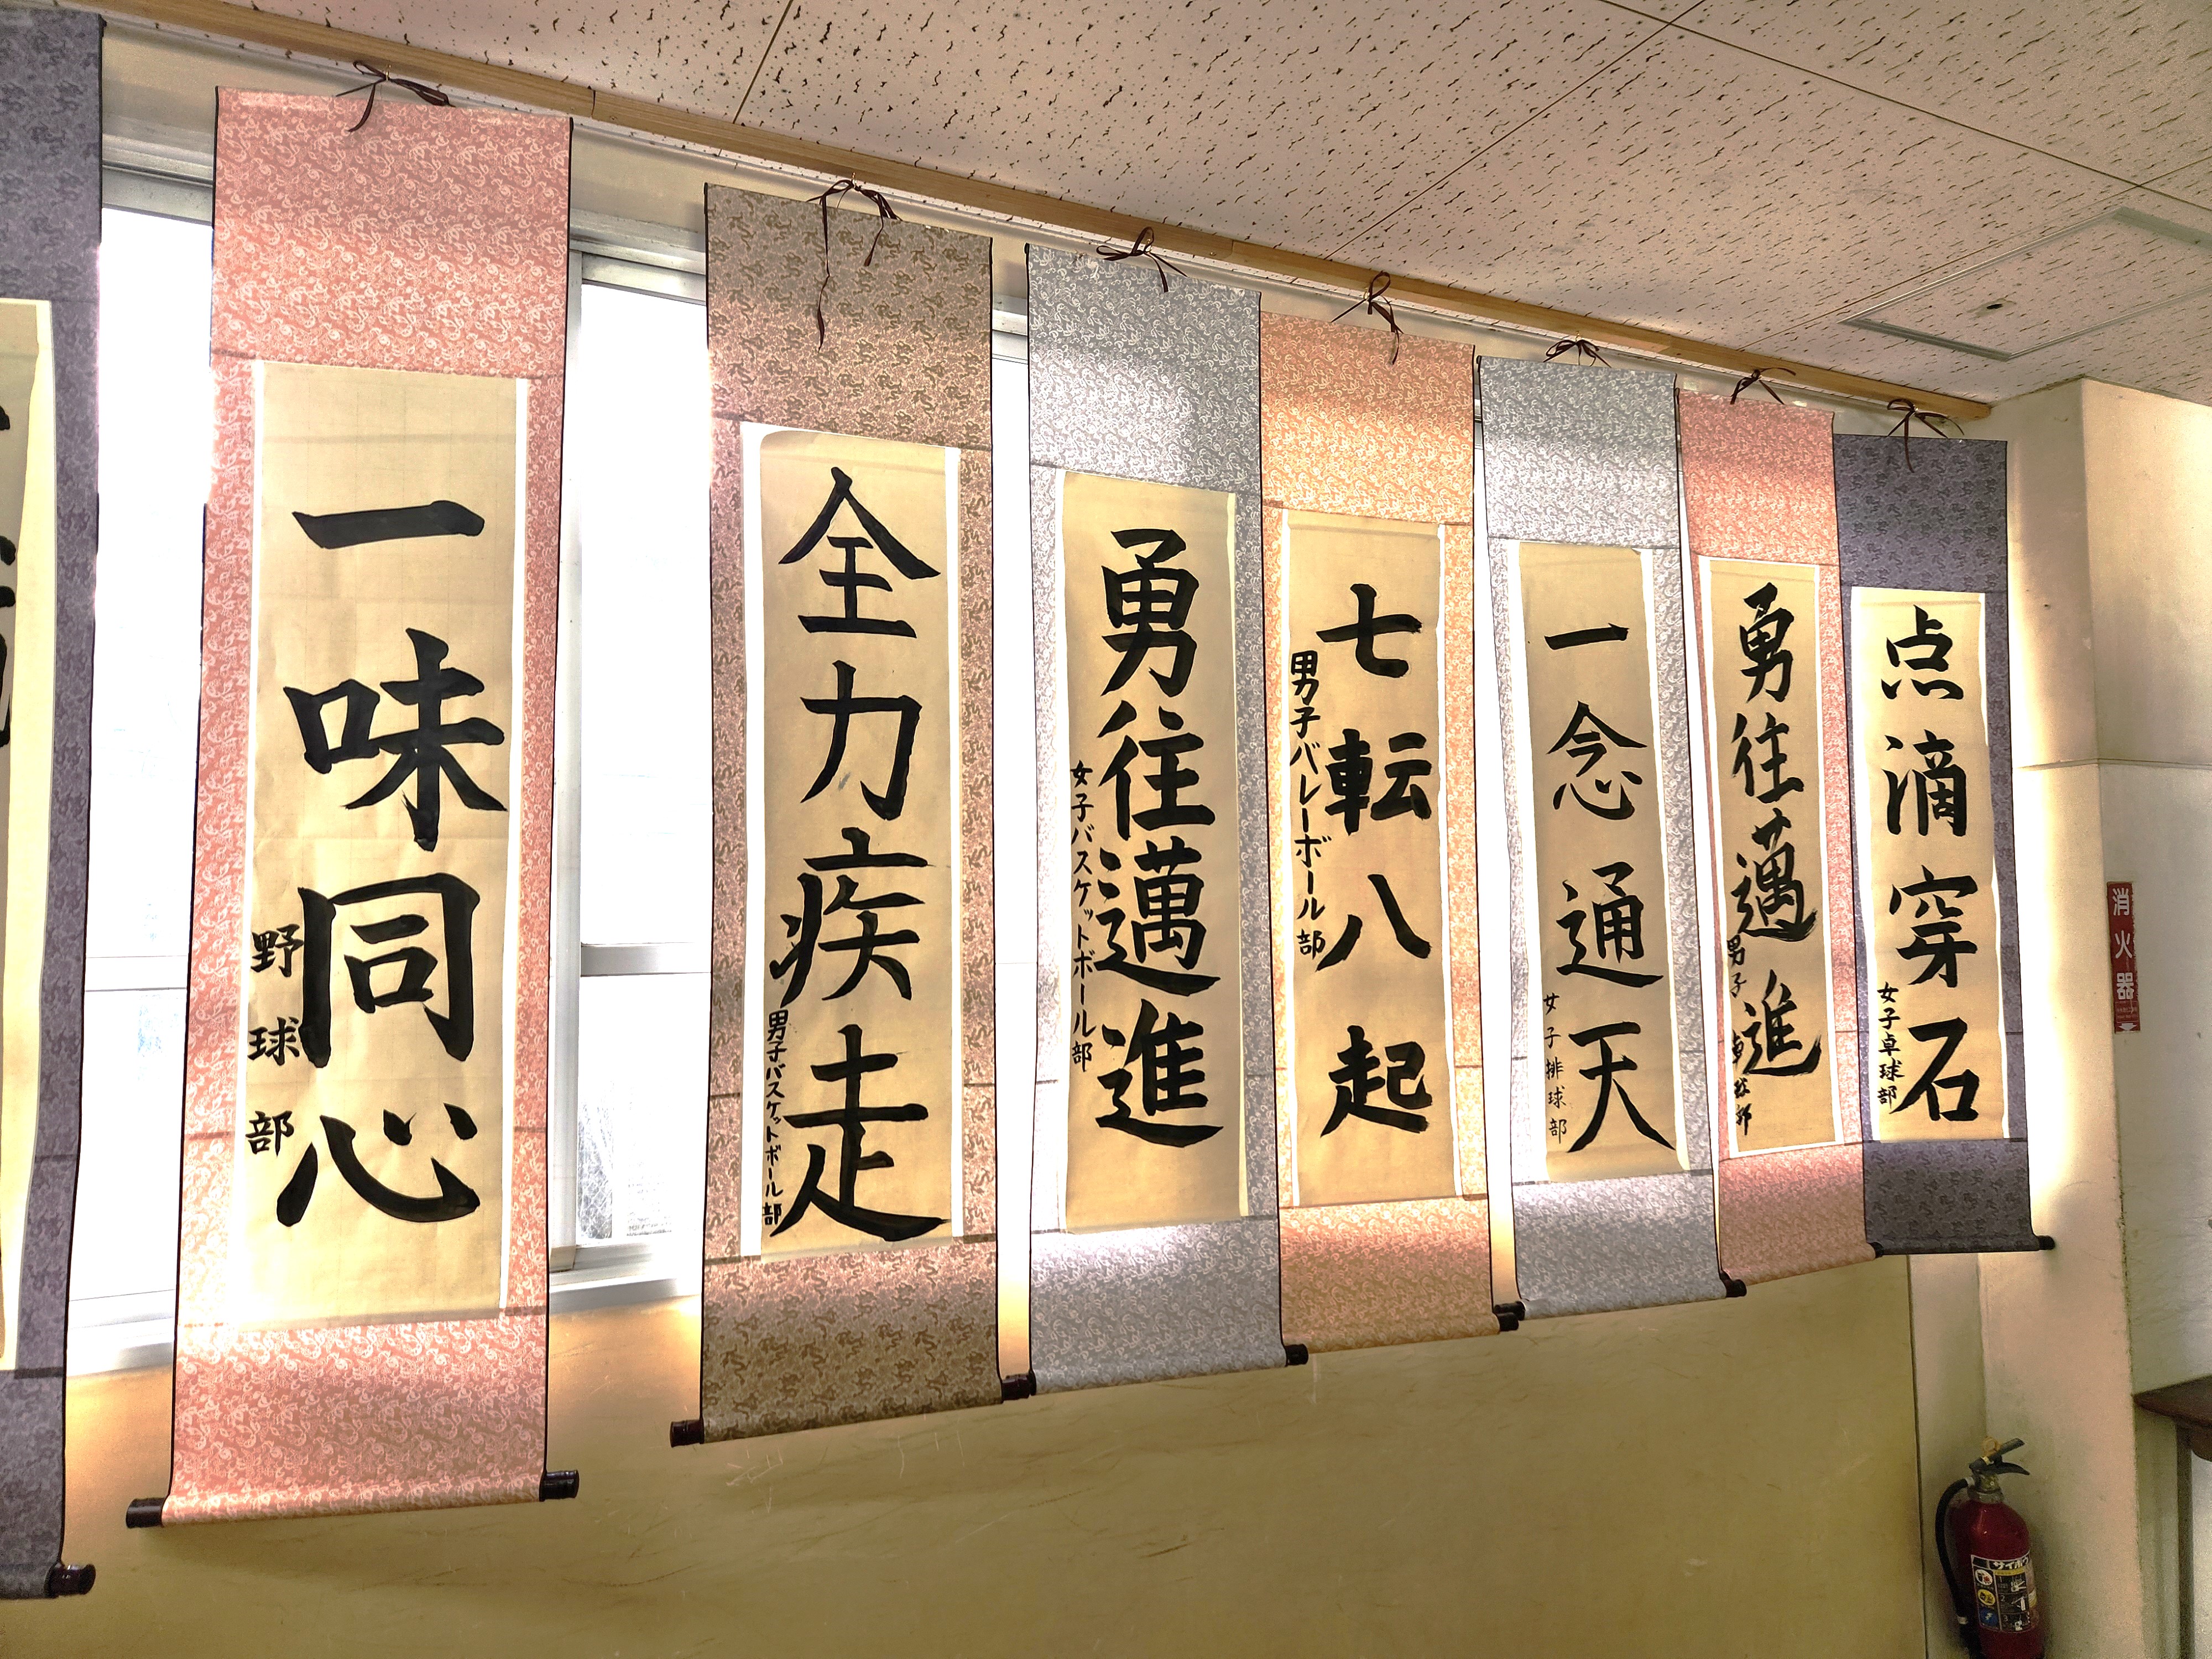 一味同心
野球部
全力疾走
男子バスケットボール部
勇往邁進
女子バスケットボール部
七転八起
男子バレーボール部
一念通天
女子排球部
勇往邁進
男子卓球部
点滴穿石
女子卓球部
消火器
サイボウ